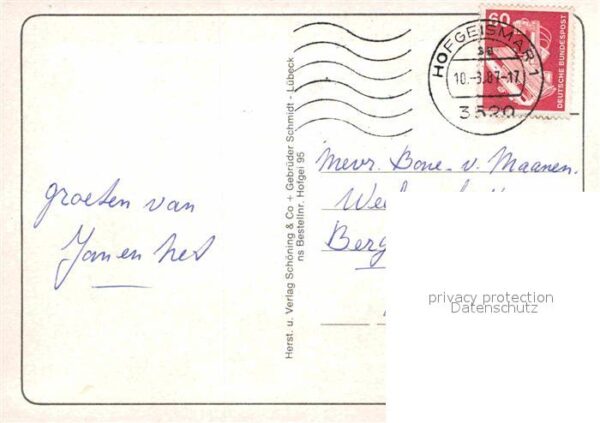 60
DEUTSCHE BUNDESPOST
HOFGEISMAR 1
se
10.-8.87-17
3520
Herst. u. Verlag Schöning & Co + Gebrüder Schmidt - Lübeck
ns Bestellnr. Hofgei 95
groeten van
Jan en Net
Mevr. Bone - v. Maanen.
Berg
privacy protection
Datenschutz